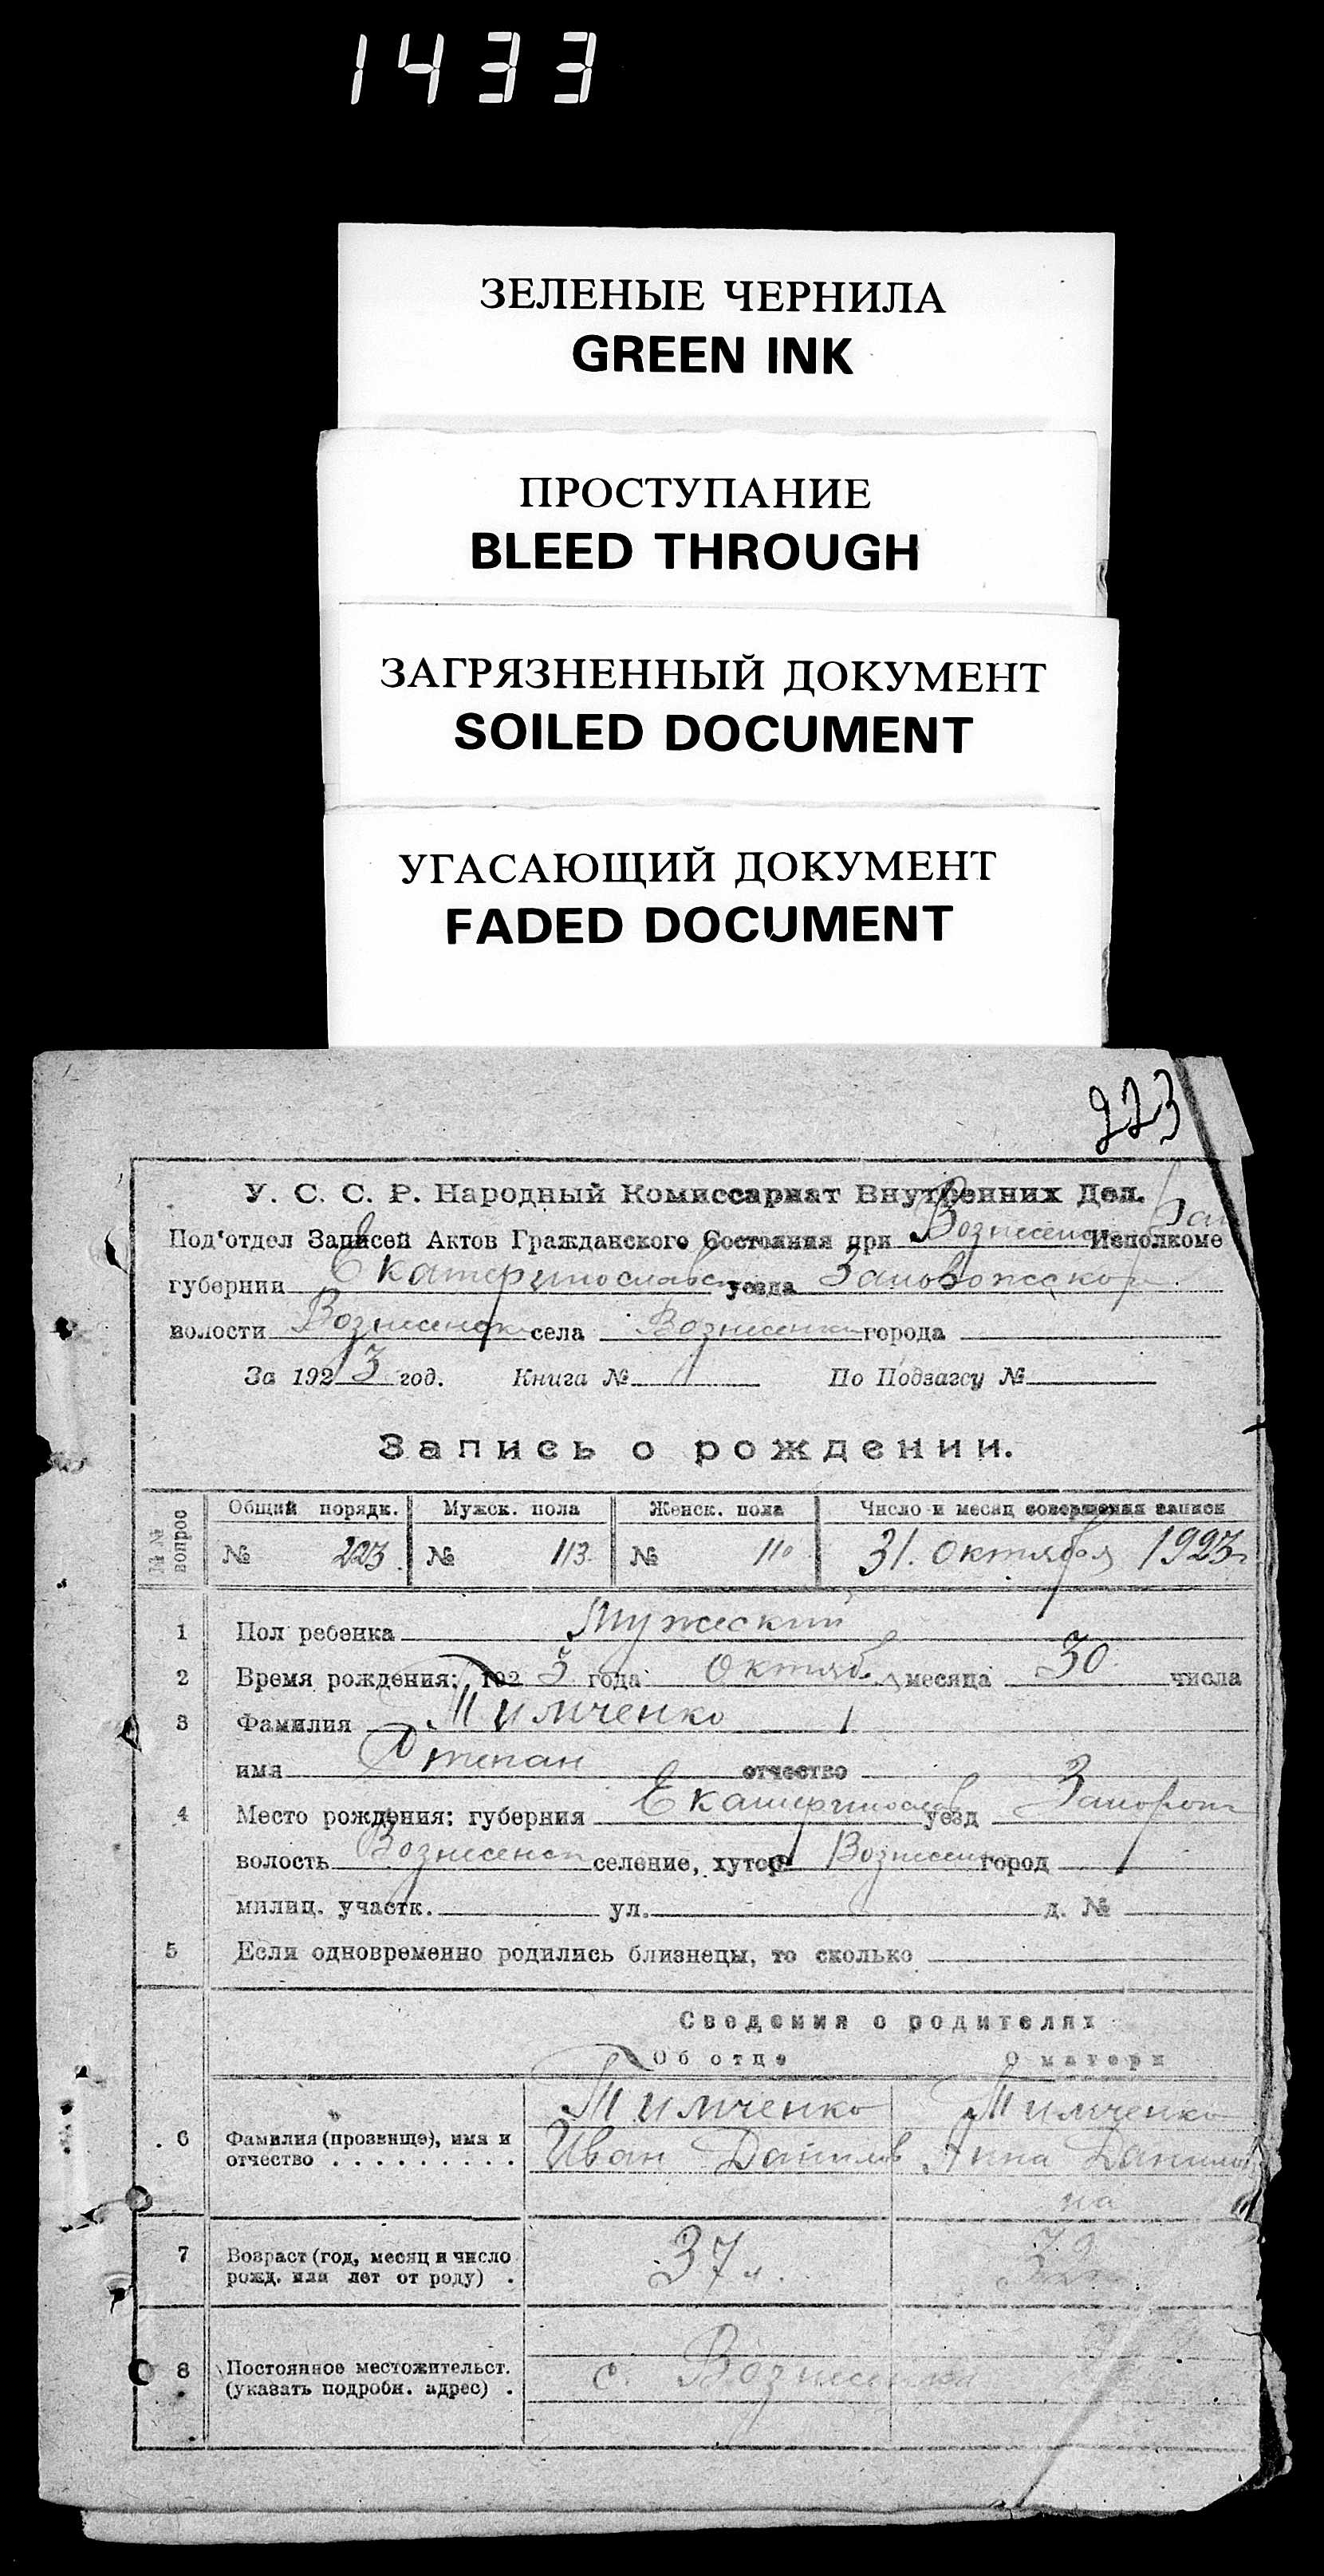 1433
ЗЕЛЕНЫЕ ЧЕРНИЛА
GREEN INK
ПРОСТУПАНИЕ
BLEED THROUGH
ЗАГРЯЗНЕННЫЙ ДОКУМЕНТ
SOILED DOCUMENT
УГАСАЮЩИЙ ДОКУМЕНТ
FADED DOCUMENT
223
У. С. С. Р. Народный Комиссариат Внутренних Дел.
Под'отдел Записей Актов Гражданского Состояния при Вознесенс Исполкоме
губернии Екатеринославск уезда
волости Вознесенск села Вознесенки города
За 1923 год. Книга № По Подзагсу №
Запись о рождении.
№№ вопрос Общий порядк. Мужск. пола Женск. пола Число и месяц совершения записи
№ 223. № 113. № 110 31. октября 1923 г
1 Пол ребенка Мужеский
2 Время рождения: 1923 года Октяб. месяца 30 числа
3 Фамилия Тимченко
имя Степан отчество
4 Место рождения: губерния Екатеринослав уезд Запорож
волость Вознесенск селение, хутор Вознесенк город
милиц. участк. ул. д. №
5 Если одновременно родились близнецы, то сколько
Сведения о родителях
Об отце О матери
6 Фамилия (прозвище), имя и отчество Тимченко Тимченко
Иван Данилов Анна Данилов
на
7 Возраст (год, месяц и число рожд. или лет от роду) 37 л.
8 Постоянное местожительст. (указать подробн. адрес) с. Вознесенка